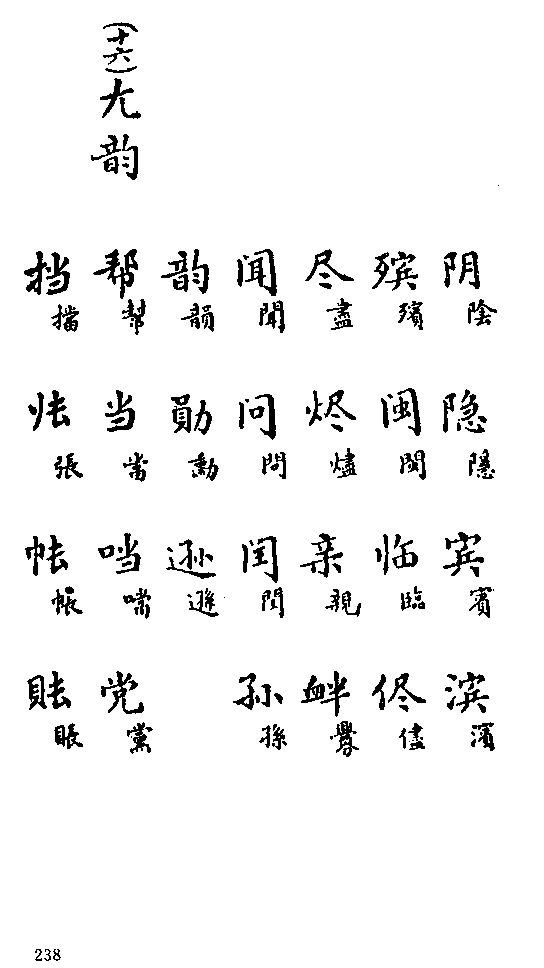 阴 陰 隐 隱 宾 賓 滨 濱
殡 殯 闽 閩 临 臨 侭 儘
尽 盡 烬 燼 亲 親 衅 釁
闻 聞 问 問 闰 閏 孙 孫
韵 韻 勛 勳 逊 遜
(十六)ㄤ韵
帮 幫 当 當 𪠽 噹 党 黨
挡 擋 张 張 帐 帳 账 賬
238